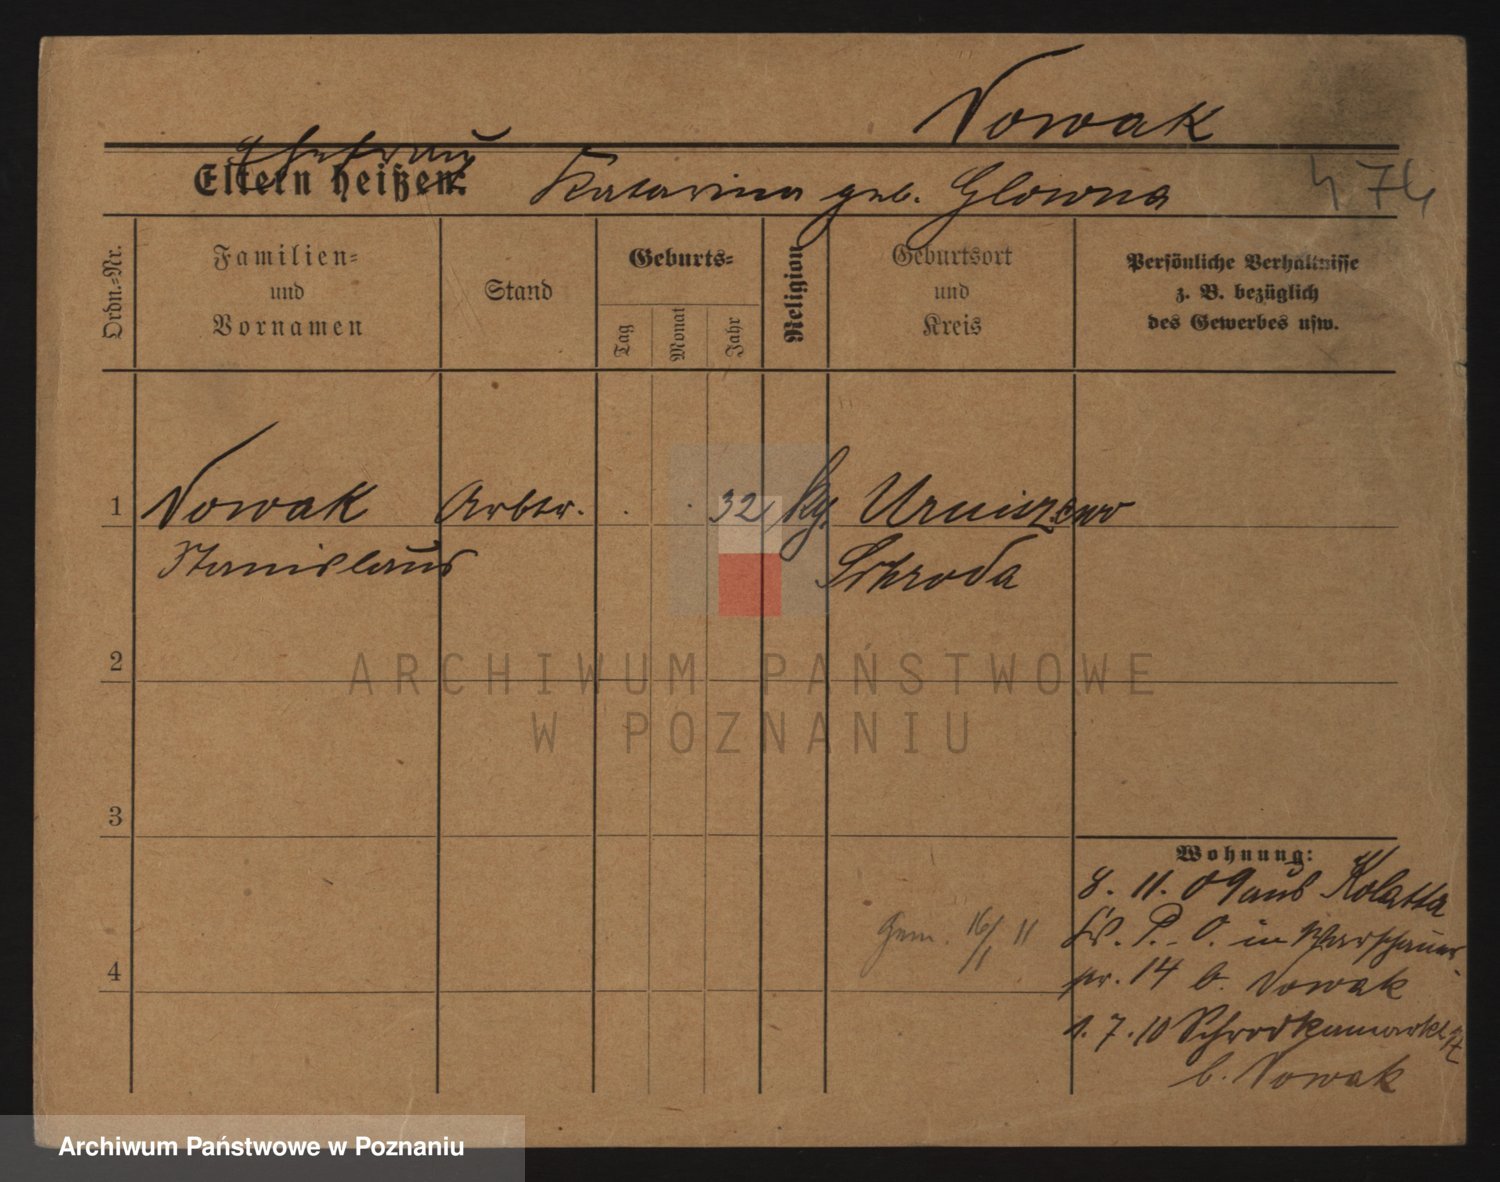 Nowak
Ehefrau
Eltern heißen:
Katarina geb. Glowna
474
Ordn.-Nr.
Familien-
und
Vornamen
Stand
Geburts-
Tag
Monat
Jahr
Religion
Geburtsort
und
Kreis
Persönliche Verhältnisse
z. B. bezüglich
des Gewerbes usw.
1
Nowak Arbtr. . . 32
Stanislaus
Schroda
2
ARCHIWUM PAŃSTWOWE
W POZNANIU
3
Wohnung:
8. 11. 09 aus Kolatta
Kr. P.-O. in Warschauer
str. 14 b. Nowak
4
Gem. 16/11 11
1. 7. 10 Schrodkamarkt
b. Nowak
Archiwum Państwowe w Poznaniu